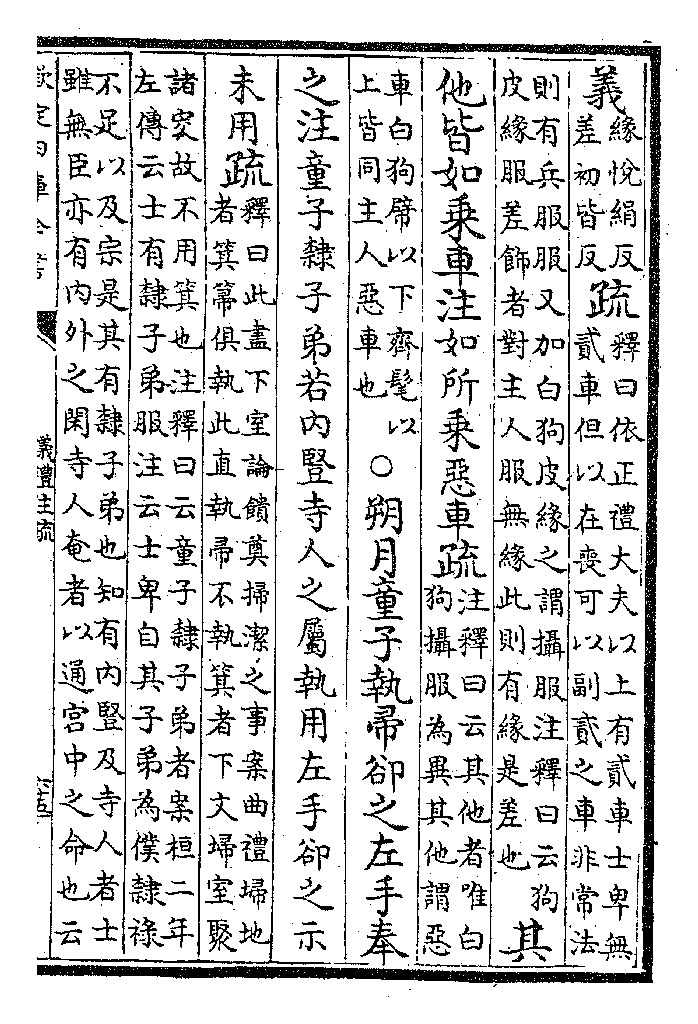 義緣悅絹反
差初皆反疏釋曰依正禮大夫以上有貳車士卑無
貳車但以在喪可以副貳之車非常法
則有兵服服又加白狗皮緣之謂攝服注釋曰云狗
皮緣服差飾者對主人服無緣此則有緣是差也其
他皆如乘車注如所乘惡車疏注釋曰云其他者唯白
狗攝服為異其他謂惡
車白狗幦以下齊髦以
上皆同主人惡車也○朔月童子執帚卻之左手奉
之注童子隸子弟若內豎寺人之屬執用左手卻之示
未用疏釋曰此盡下室論饋奠掃潔之事案曲禮埽地
者箕箒俱執此直執帚不執箕者下文埽室聚
諸窔故不用箕也注釋曰云童子隸子弟者案桓二年
左傳云士有隸子弟服注云士卑自其子弟為僕隸祿
不足以及宗是其有隸子弟也知有內豎及寺人者士
雖無臣亦有內外之閑寺人奄者以通宮中之命也云
欽定四庫全書
儀禮注疏